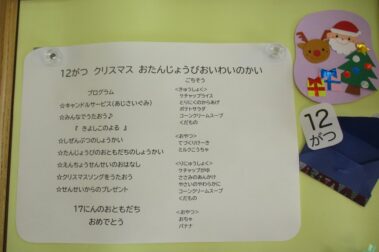 12がつ クリスマス おたんじょうびおいわいのかい
プログラム
☆キャンドルサービス(あじさいぐみ)
☆みんなでうたおう♪
『 きよしこのよる 』
☆しぜんぶつのしょうかい
☆たんじょうびのおともだちのしょうかい
☆えんちょうせんせいのおはなし
☆クリスマスソングをうたおう
☆せんせいからのプレゼント
17にんのおともだち
おめでとう
ごちそう
<きゅうしょく>
ケチャップライス
とりにくのからあげ
ポテトサラダ
コーンクリームスープ
くだもの
<おやつ>
てづくりけーき
ミルクこうちゃ
<りにゅうしょく>
ケチャップがゆ
ささみのあんかけ
やさいのやわらかに
コーンクリームスープ
くだもの
<おやつ>
おちゃ
バナナ
12
がつ